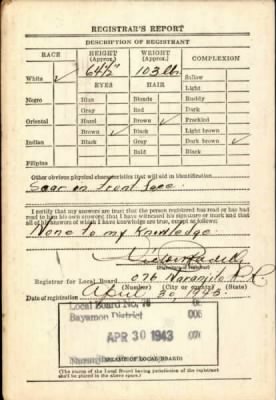 REGISTRAR'S REPORT
DESCRIPTION OF REGISTRANT
RACE HEIGHT (Approx.) WEIGHT (Approx.) COMPLEXION
White ✓ 64½" 103 lbs Sallow
EYES HAIR Light
Negro Blue Blonde Ruddy
Gray Red Dark
Oriental Hazel Brown ✓ Freckled
Brown ✓ Black Light brown
Indian Black Gray Dark brown ✓
Bald Black
Filipino
Other obvious physical characteristics that will aid in identification
Scar in front face.
I certify that my answers are true; that the person registered has read or has had
read to him his own answers; that I have witnessed his signature or mark and that
all of his answers of which I have knowledge are true, except as follows:
None to my knowledge.
(Signature of registrar)
Registrar for Local Board 076 Naranjito P.R.
(Number) (City or county) (State)
Date of registration April 30, 1943.
Local Board No. 76
Bayamon District
APR 30 1943
(STAMP OF LOCAL BOARD)
(The stamp of the Local Board having jurisdiction of the registrant
shall be placed in the above space.)